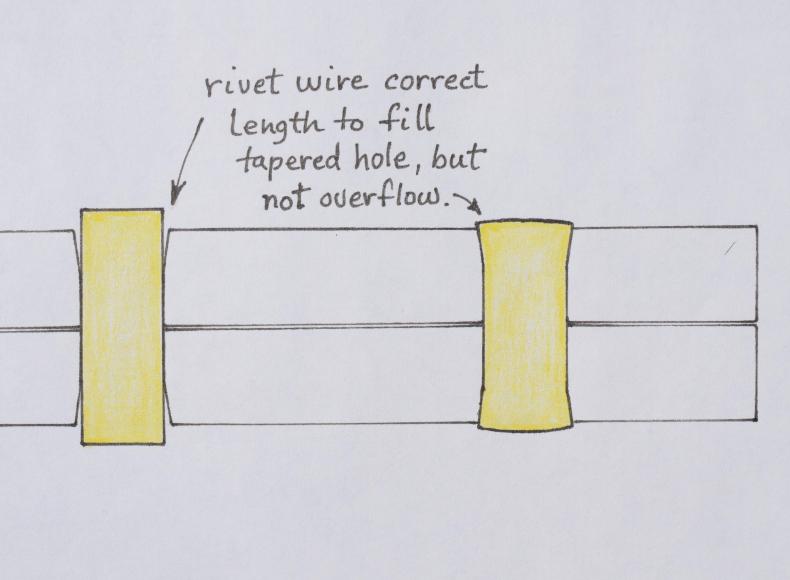 rivet wire correct
Length to fill
tapered hole, but
not overflow.